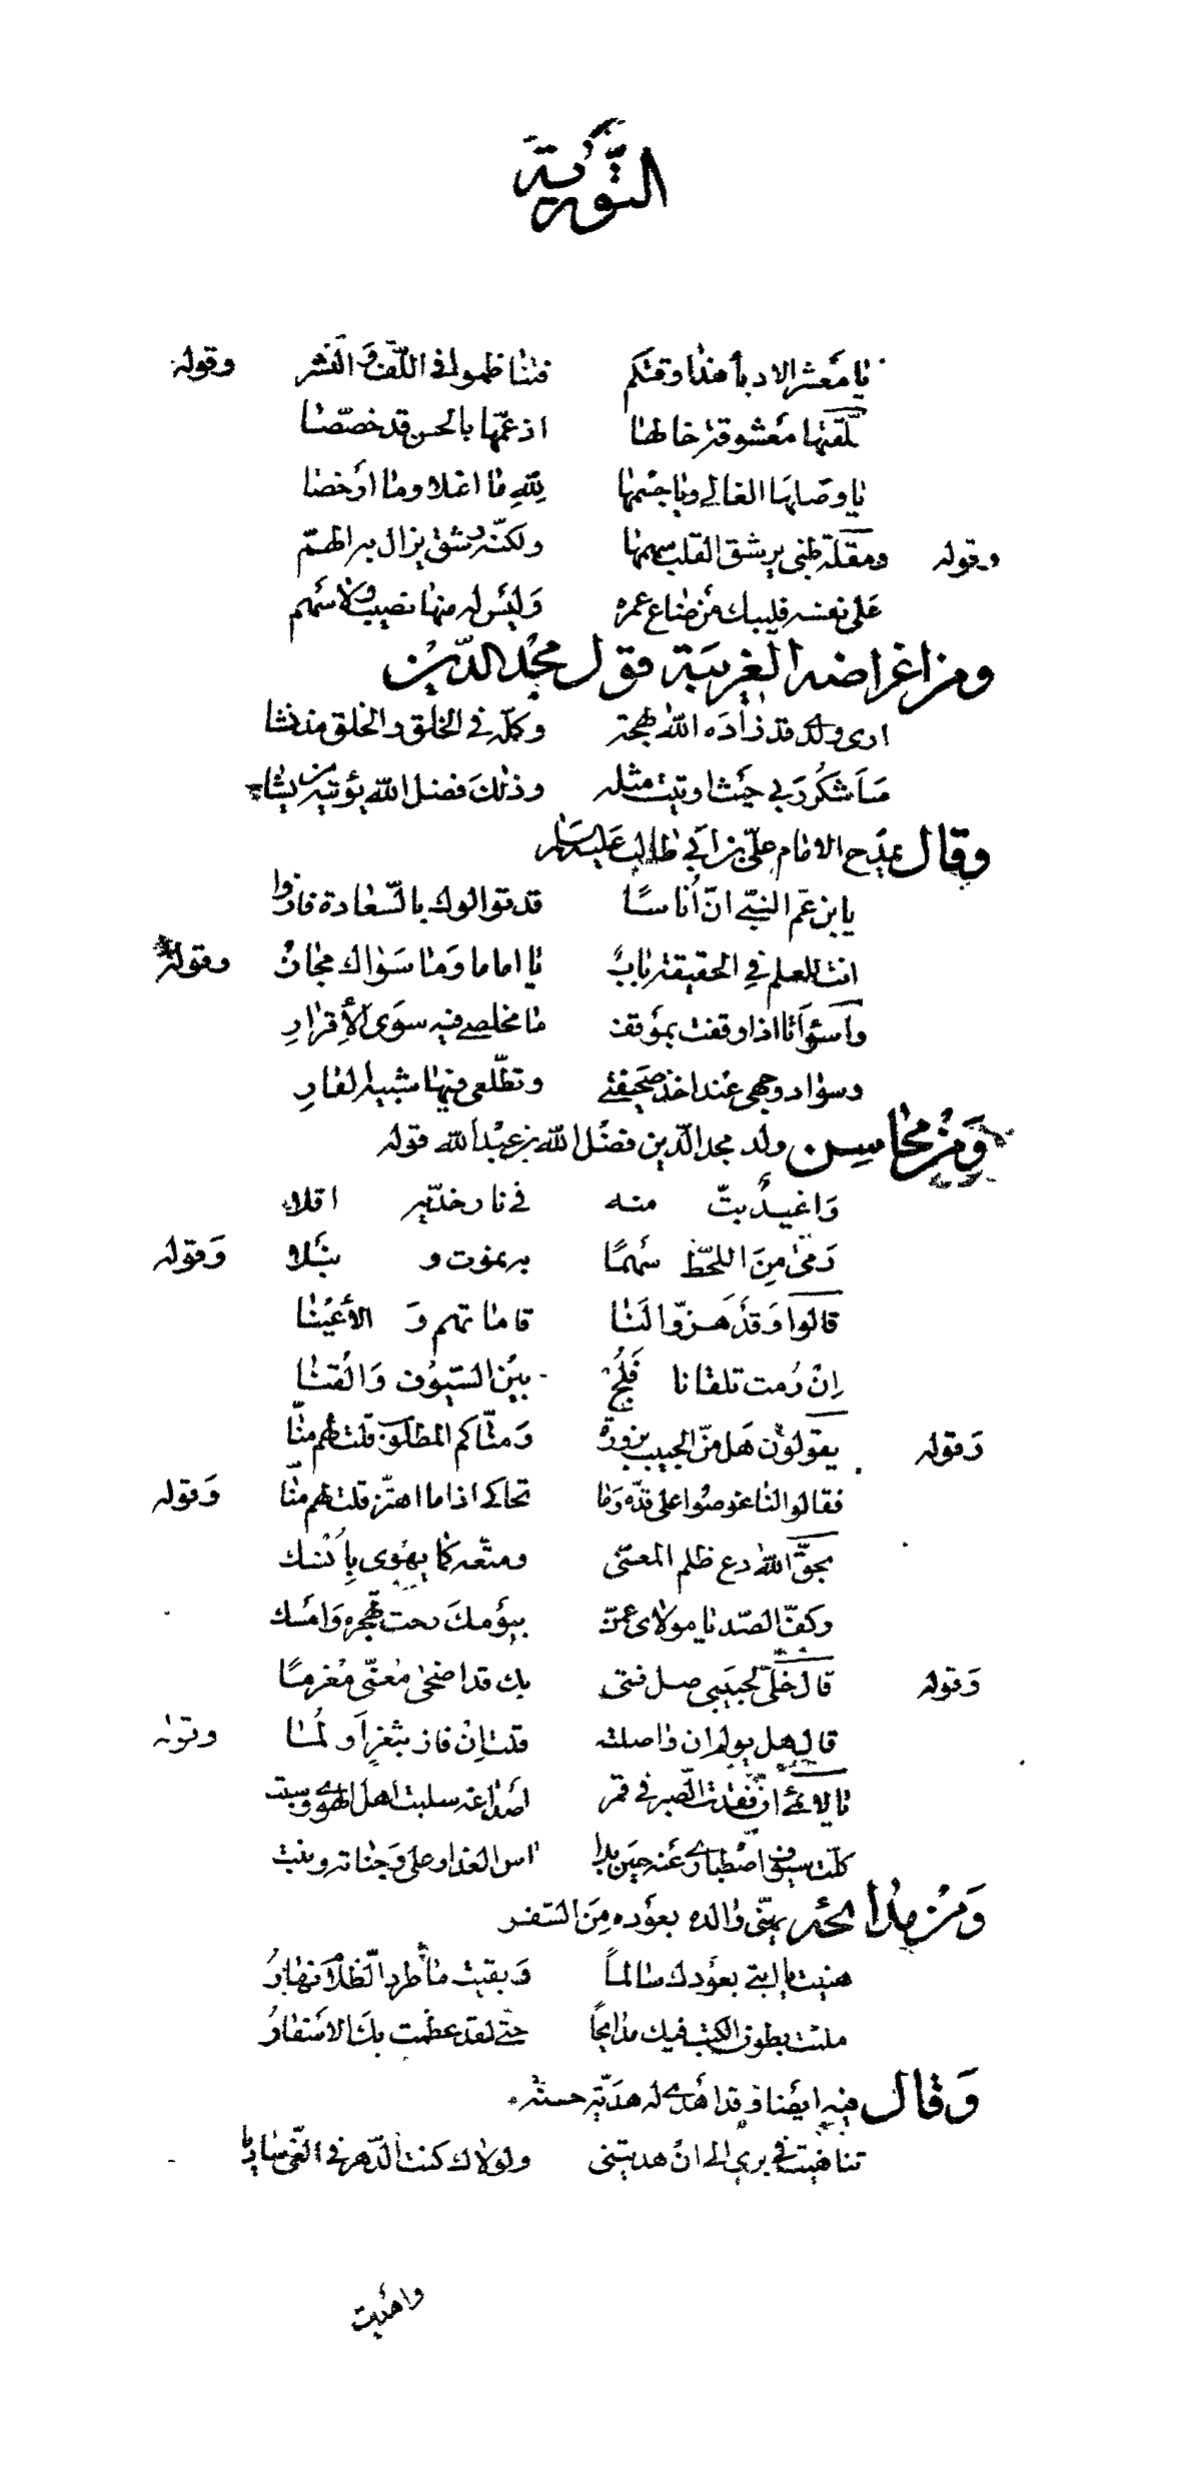 التورية
يا معشر الادبا هذا وقتكم فتناظموا في اللف والنشر وقوله
كلفتها معشوقة خالها اذ عمّها بالحسن قد خصّصا
يا وصلها الغالي ويا جسمها لله ما اغلا وما أرخصا
وقوله ومقلة ظبي يرشق القلب سهمها ولكنه رشق يزال به الهمّ
على نفسه فليبك من ضاع عمره وليس له منها نصيب ولا سهم
ومن اغراضه الغريبة قول مجد الدين
ارى ولدي قد زاده الله بهجة وكمّله في الخلق والخلق مذ نشا
سأشكر ربي حيث اوتيت مثله وذلك فضل الله يؤتيه من يشاء
وقال يمدح الامام علي بن ابي طالب عليه السلام
يا بن عم النبي انّ أناسًا قد توالوك بالسّعادة فازوا
انت للعلم في الحقيقة بابٌ يا اماما وما سواك مجازُ وقوله
واسوأتا اذا وقفت بموقف ما مخلصي فيه سوى الأقرارِ
وسواد وجهي عند اخذ صحيفتي وتطلّعي فيها شبيه القارِ
ومن محاسن ولد مجد الدين فضل الله بن عبد الله قوله
واغيدٌ بتّ منه في نار خدّيه اقلا
رمى من اللحظ سهمًا به يموت و يبلا وقوله
قالوا وقد هزّوا لنا قاماتهم و الأعينا
إن رمت تلقانا فلُج بين السيوف والقنا
وقوله يقولون هل منّ الحبيب بزورة ومنّاكم المطلوب قلت لهم منّا
فقالوا لنا غوصوا على قدّه وما تحاكي اذا ما اهتز قلت لهم منّا وقوله
بحق الله دع ظلم المعنّى ومتّعه كما يهوى بأنسك
وكفّ الصدّ يا مولاى عمّن بيومك رحت تهجره وامسك
وقوله قال خلّي لحبيبي صل فتى بك قد اضحى معنّى مغرمًا
قال هل يولم ان واصلته قلت إن فاز بثغر أو لما وقوله
يا لائمي ان فقدت الصبر في قمر أصداغه سلبت اهل الهوى وسبت
كلّت سيوف اصطباري عنه حين بدا اس العذار على وجناته ونبت
ومن مدائحه يهنّى والده بعوده من السفر
هنيت يا ابتي بعودك سالماً وبقيت ما طرد الظلام نهارُ
ملئت بطون الكتب فيك مدايحًا حتى لقد عظمت بك الاسفارُ
وقال فيه ايضا وقد اهدى له هديّة حسنة
تناهيت في بري الى ان هديتني ولولاك كنت الدهر في الغي ساريا
واهديت